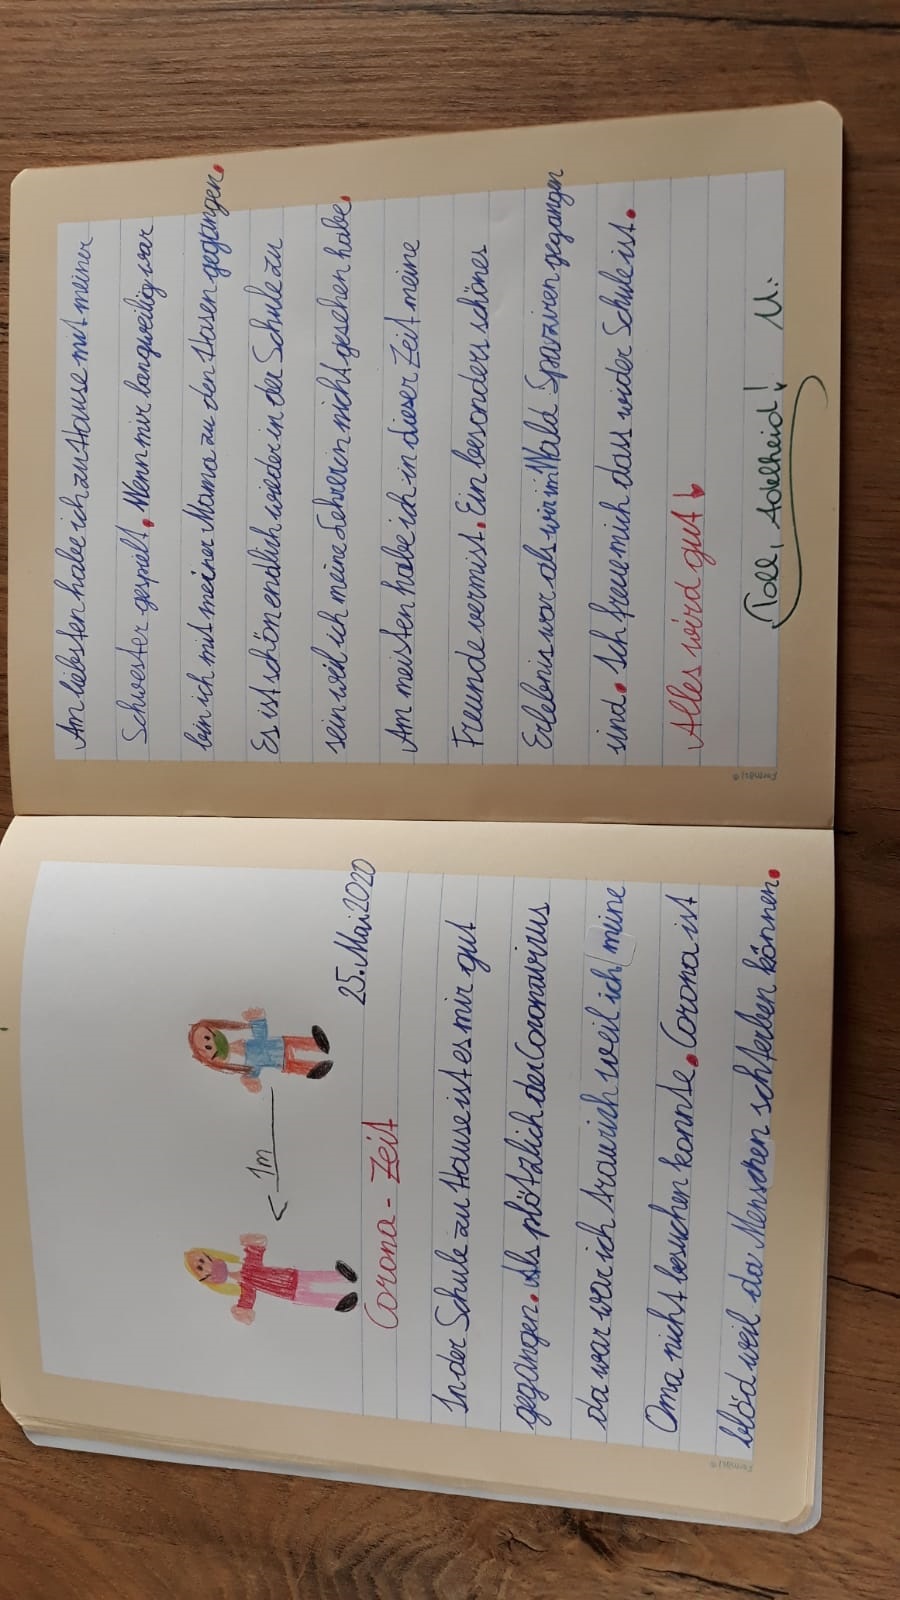 1m
25. Mai 2020
Corona - Zeit
In der Schule zu Hause ist es mir gut
gegangen. Als plötzlich der Coronavirus
da war war ich traurich weil ich meine
Oma nicht besuchen konnte. Corona ist
blöd weil da Menschen schterben können.
Am liebsten habe ich zu Hause mit meiner
Schwester gespielt. Wenn mir langweilig war
bin ich mit meiner Mama zu den Hasen gegangen.
Es ist schön endlich wieder in der Schule zu
sein weil ich meine Lehrerin nicht gesehen habe.
Am meisten habe ich in dieser Zeit meine
Freunde vermist. Ein besonders schönes
Erlebnis war als wir im Wald Spaziren gegangen
sind. Ich freue mich das wider Schule ist.
Alles wird gut!
Toll, Adelheid! U.
Formati
Formati